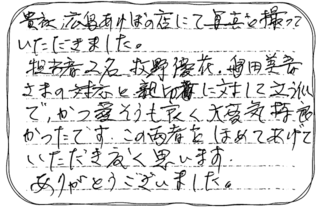 貴社 広島あけぼの店にて写真を撮って
いただきました。
担当者2名 牧野優花、角田美音
さまの対応と親切に対して立派
で、かつ愛そうも良く大変気持良
かったです。この両者をほめてあげて
いただき度く思います。
ありがとうございました。